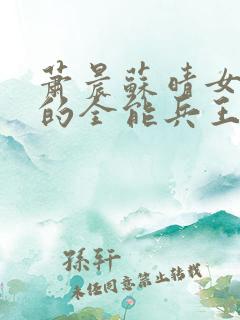 萧晨蘇晴女
的全能兵王
孫轩
未经同意禁止转载